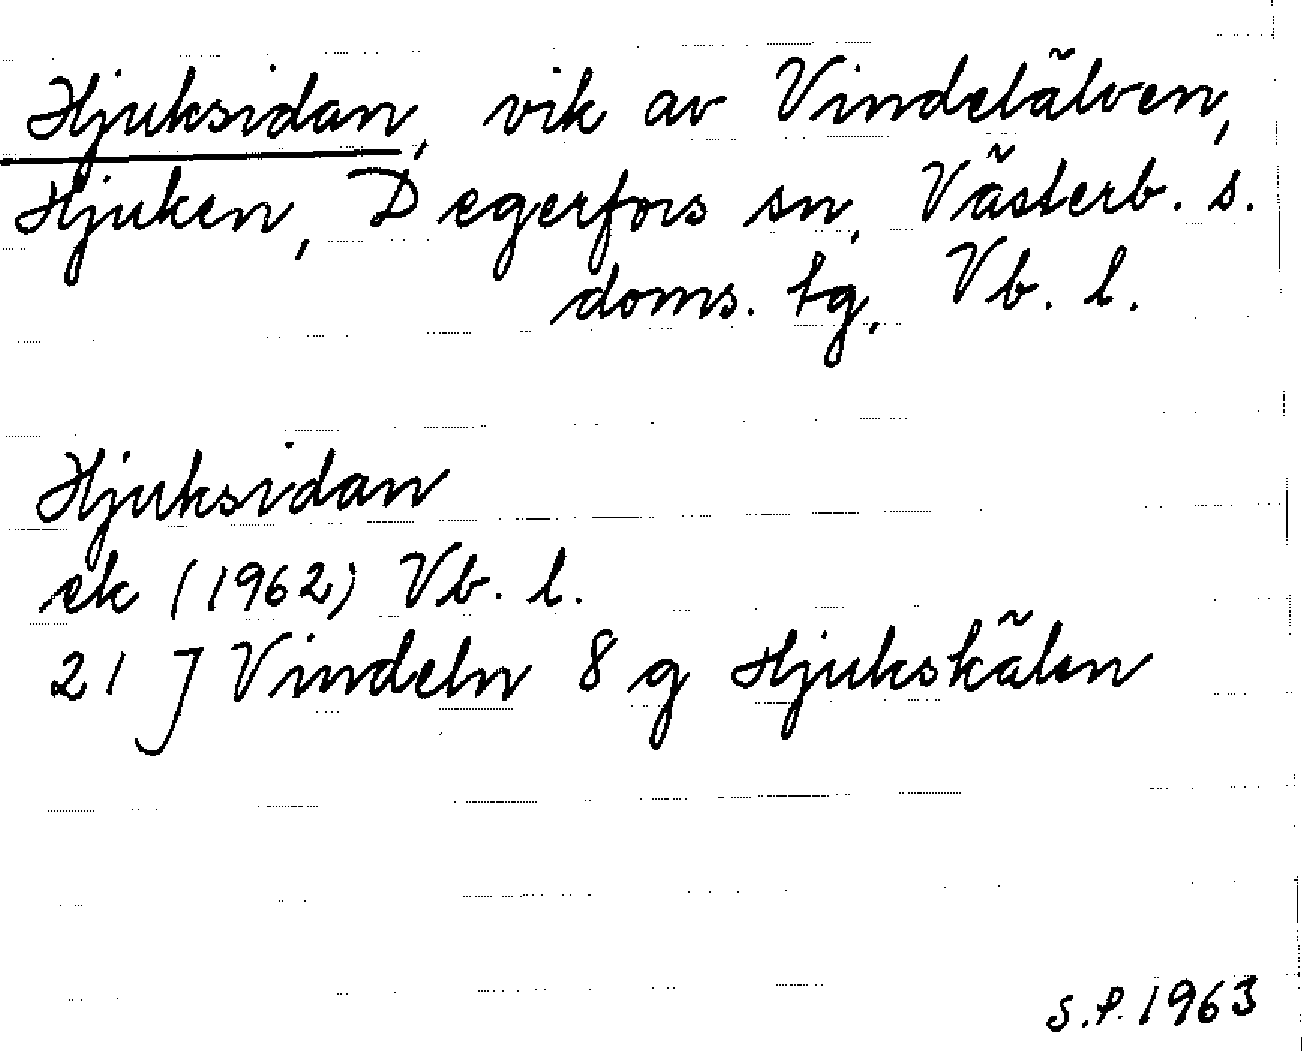 Hjuksidan, vik av Vindelälven,
Hjuken, Degerfors sn, Västerb. s.
doms. tg, Vb. l.
Hjuksidan
ek (1962) Vb. l.
21 J Vindeln 8 g Hjukskälen
S.P. 1963